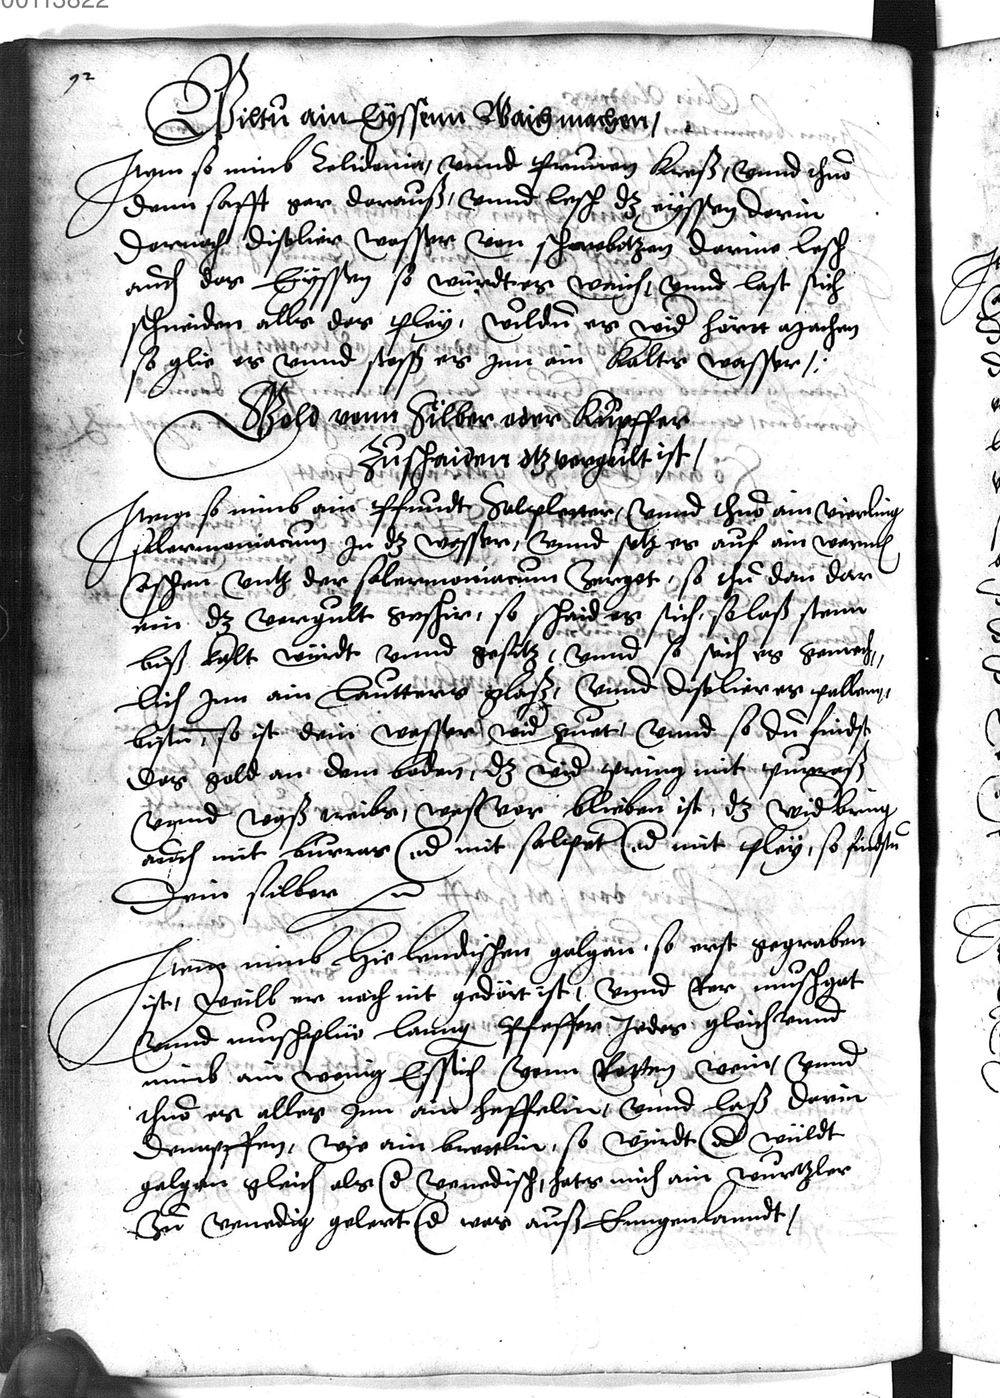 00113822
92
Wiltu ain Eyssenn Waich machen /
Item so nimb Celidonia, vnnd prunen kreß, vnnd thuo
denn safft her darauß, vnnd lesch dz eyssen darin
darnach distilier wasser von darine lesch
auch das Eyssen so würdt es waich, vnnd last sich
schneiden alls das pley, wildu es wid hörtt machen
so glie es vnnd stoss es inn ain kaltes wasser /:
Gold vonn Silber oder Kupffer
Zuschaiden dz vergult ist /
Item so nimb ain pfundt Salpetter, vnnd thuo ain vierling
salarmoniacum in dz wasser, vnnd setz es auf ain warme
eschen vntz der salarmoniacum zergot, so thu dan dar
ein dz vergult geschir, so schaid es sich, so laß stenn
biß kalt würdt vnnd gesitz, vnnd so seich es gemech,,
lich inn ain lautters glaß, vnnd distilier es
so ist dein wasser wid guet, vnnd so du findst
das gold an dem boden, dz wid pring mit
vnnd waß blieben ist, dz wid bring
auch mit burras od mit salpet od mit pley, so findstu
Dein silber
Item nimb Hie lendischen galgan so erst gegraben
ist, weill er noch nit gedört ist, vnnd muschgat
vnnd muschplüe lanng pfeffer iedes gleich vnnd
nimb ain wenig Essich vonn Rotten wein, vnnd
thuo es alles inn ain heffelin, vnnd laß darin
dempffen, wie ain bretlin, so würdt d wildt
galgan gleich als d Venedisch, hats mich ain wurtzler
Zu Venedig gelert d was auß Enngenlanndt /